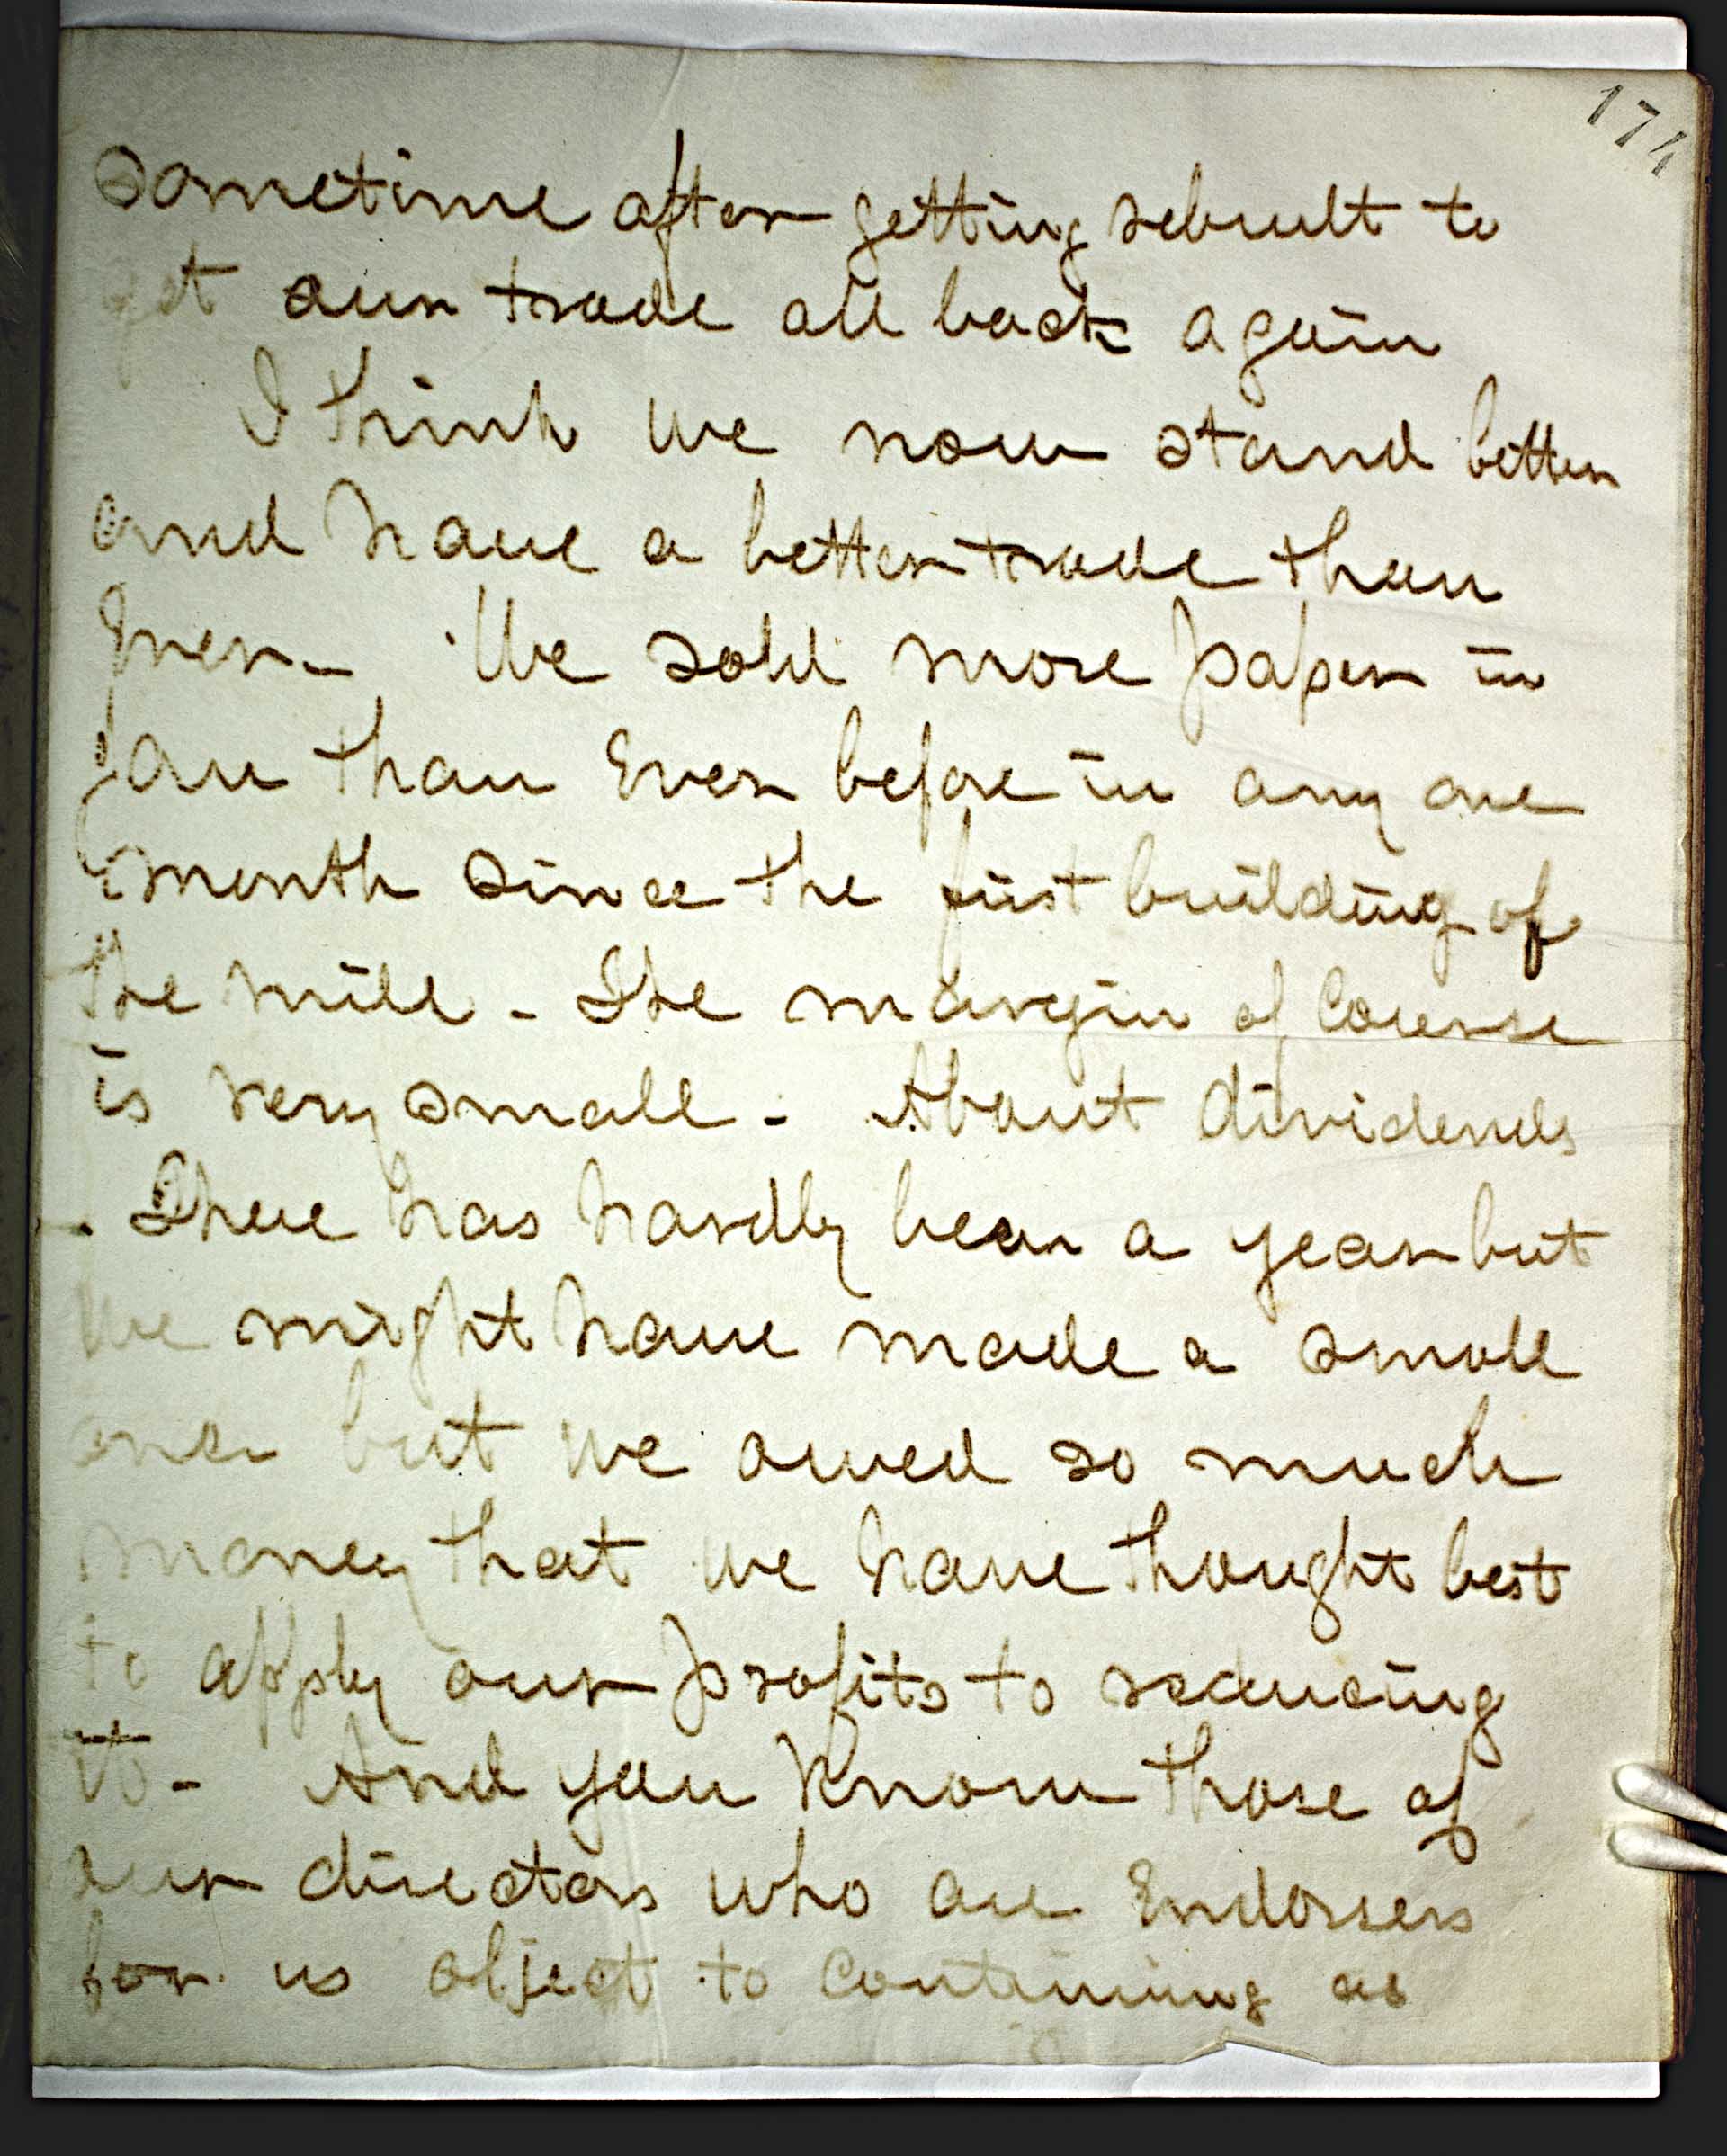 174
sometime after getting rebuilt to
get our trade all back again
I think we now stand better
and have a better trade than
Ever - We sold more paper in
Jan than Ever before in any one
month since the first building of
the mill - The margin of Course
is very small - About dividends
. There has hardly been a year but
we might have made a small
one but we owed so much
money that we have thought best
to apply our profits to reducing
it - And you Know those of
our directors who are Endorsers
for us object to Continuing as